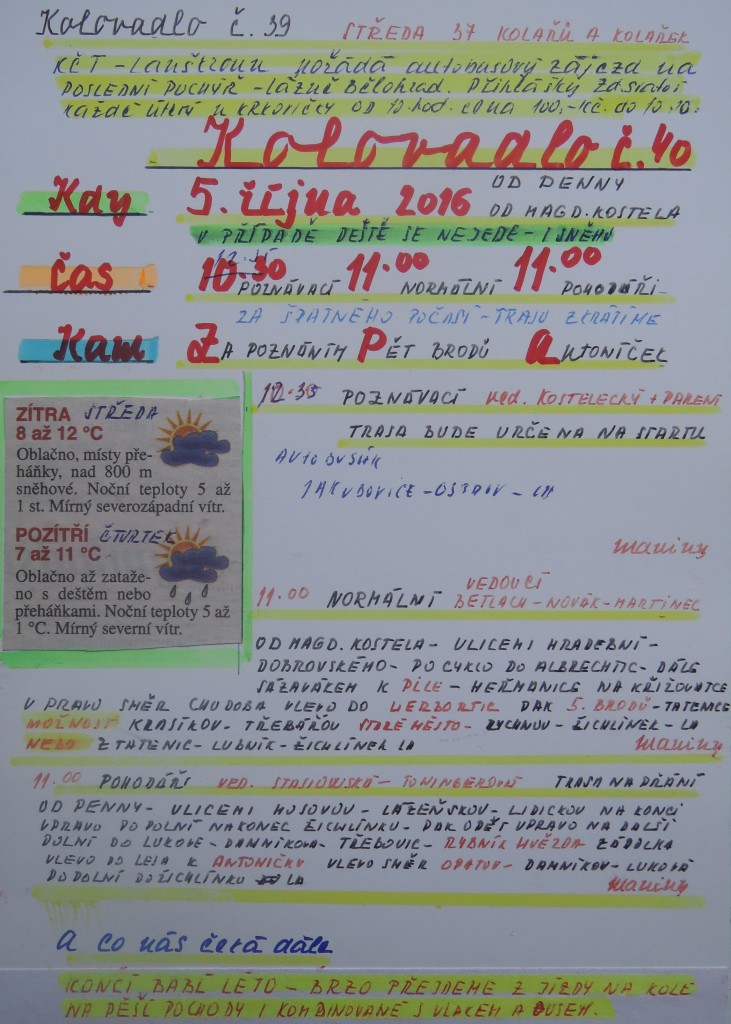 Kolovadlo č. 39 STŘEDA 37 KOLAŘŮ A KOLAŘEK
KČT - Lanškroun pořádá autobusový zájezd na
POSLEDNÍ PUCHÝŘ - LÁZNĚ BĚLOHRAD. PŘIHLÁŠKY
KAŽDÉ ÚTERÝ U KRKOVIČKY OD 10 hod. CENA 100,- Kč. do 10.10.
Kolovadlo č. 40
Kdy 5. října 2016 OD PENNY
OD MAGD. KOSTELA
V PŘÍPADĚ DEŠTĚ SE NEJEDE - I SNĚHU
12.35
čas 10.30 POZNÁVACÍ 11.00 NORMÁLNÍ 11.00 POHODÁŘI
ZA ŠPATNÉHO POČASÍ - TRASU ZKRÁTÍME
Kam ZA POZNÁNÍM PĚT BRODŮ ANTONÍČEK
ZÍTRA STŘEDA
8 až 12 °C
Oblačno, místy pře-
háňky, nad 800 m
sněhové. Noční teploty 5 až
1 st. Mírný severozápadní vítr.
POZÍTŘÍ ČTVRTEK
7 až 11 °C
Oblačno až zataže-
no s deštěm nebo
přeháňkami. Noční teploty 5 až
1 °C. Mírný severní vítr.
12.35 POZNÁVACÍ ved. KOSTELECKÝ + PARENI
TRASA BUDE URČENA NA STARTU
AUTOBUSÁK
JAKUBOVICE - OSTROV - LA
maviny
11.00 NORMÁLNÍ VEDOUCÍ
BETLACH - NOVÁK - MARTINEC
OD MAGD. KOSTELA - ULICEMI HRADEBNÍ -
DOBROVSKÉHO - PO CYKLO DO ALBRECHTIC - DÁLE
SÁZAVÁKEM K PILE - HEŘMANICE NA KŘIŽOVATCE
V PRAVO SMĚR CHUDOBA VLEVO DO HERBORTIC PAK 5. BRODŮ - TATENICE
MOŽNOST KRASÍKOV - TŘEBAŘOV STARÉ MĚSTO - RYCHNOV - ŽICHLÍNEK - LA
NEBO Z TATENIC - LUBNÍK - ŽICHLÍNEK LA maviny
11.00 POHODÁŘI VED. STASIOWSKÁ - TONINGEROVÁ TRASA NA PŘÁNÍ
OD PENNY - ULICEMI HUSOVOU - LÁZEŇSKOU - LIDICKOU NA KONCI
VPRAVO PO POLNÍ NAKONEC ŽICHLÍNKU - PAK OPĚT VPRAVO NA DALŠÍ
POLNÍ DO LUKOVÉ - DAMNÍKOVA - TŘEBOVIC - RYBNÍK HVĚZDA ZÁDOLKA
VLEVO DO LESA K ANTONÍČKU VLEVO SMĚR OPATOV - DAMNÍKOV - LUKOVÁ
PO POLNÍ DO ŽICHLÍNKU LA maviny
A co nás čeká dále
KONČÍ BABÍ LÉTO - BRZO PŘEJDEME Z JÍZDY NA KOLE
NA PĚŠÍ POCHODY I KOMBINOVANÉ S VLAKEM A BUSEM.